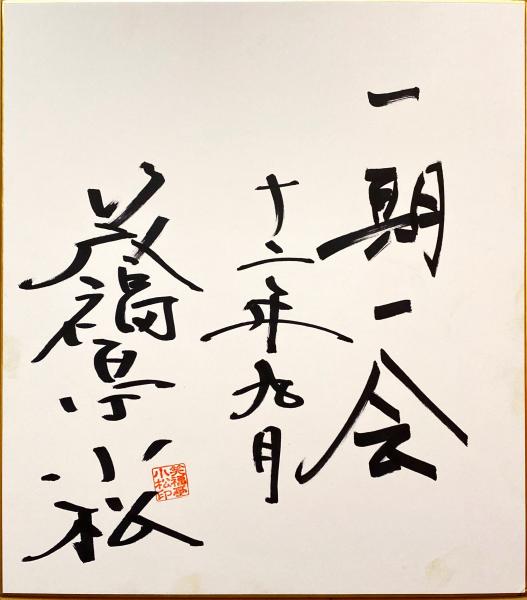 一期一会
十二年九月
笑福亭小松
笑福亭
小松印